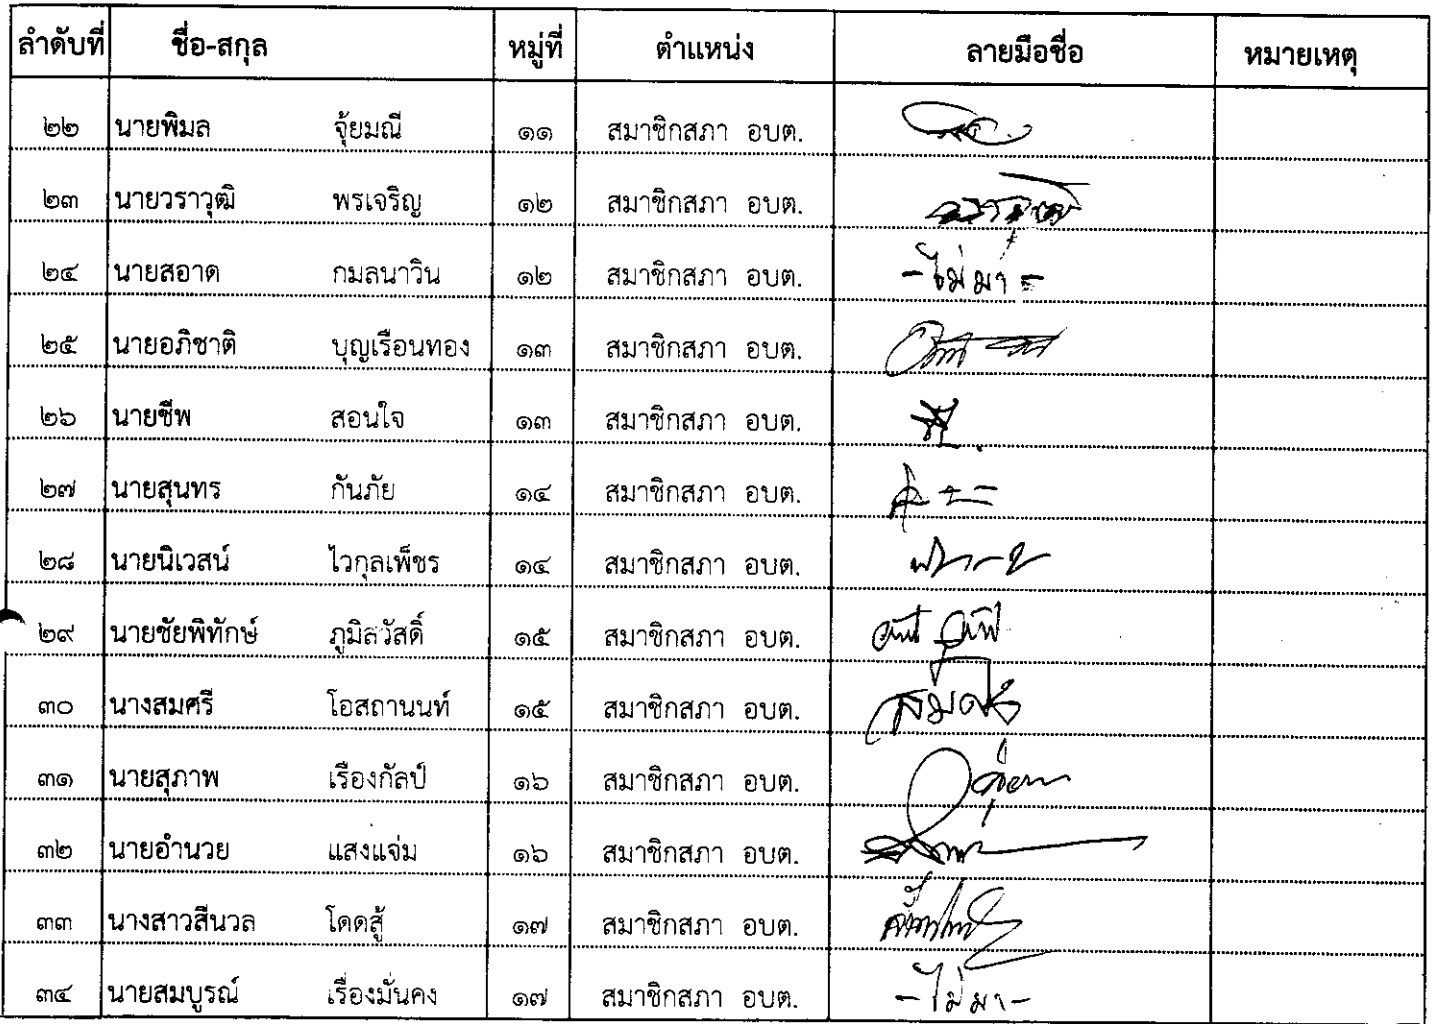 ลำดับที่ ชื่อ-สกุล หมู่ที่ ตำแหน่ง ลายมือชื่อ หมายเหตุ
๒๒ นายพิมล จุ้ยมณี ๑๑ สมาชิกสภา อบต.
๒๓ นายวราวุฒิ พรเจริญ ๑๒ สมาชิกสภา อบต. วราวุฒิ
๒๔ นายสอาด กมลนาวิน ๑๒ สมาชิกสภา อบต. -ไม่มา-
๒๕ นายอภิชาติ บุญเรือนทอง ๑๓ สมาชิกสภา อบต.
๒๖ นายชีพ สอนใจ ๑๓ สมาชิกสภา อบต.
๒๗ นายสุนทร กันภัย ๑๔ สมาชิกสภา อบต.
๒๘ นายนิเวสน์ ไวกุลเพ็ชร ๑๔ สมาชิกสภา อบต.
๒๙ นายชัยพิทักษ์ ภูมิสวัสดิ์ ๑๕ สมาชิกสภา อบต.
๓๐ นางสมศรี โอสถานนท์ ๑๕ สมาชิกสภา อบต. สมศรี
๓๑ นายสุภาพ เรืองกัลป์ ๑๖ สมาชิกสภา อบต.
๓๒ นายอำนวย แสงแจ่ม ๑๖ สมาชิกสภา อบต.
๓๓ นางสาวสีนวล โดดสู้ ๑๗ สมาชิกสภา อบต.
๓๔ นายสมบูรณ์ เรื่องมั่นคง ๑๗ สมาชิกสภา อบต. -ไม่มา-